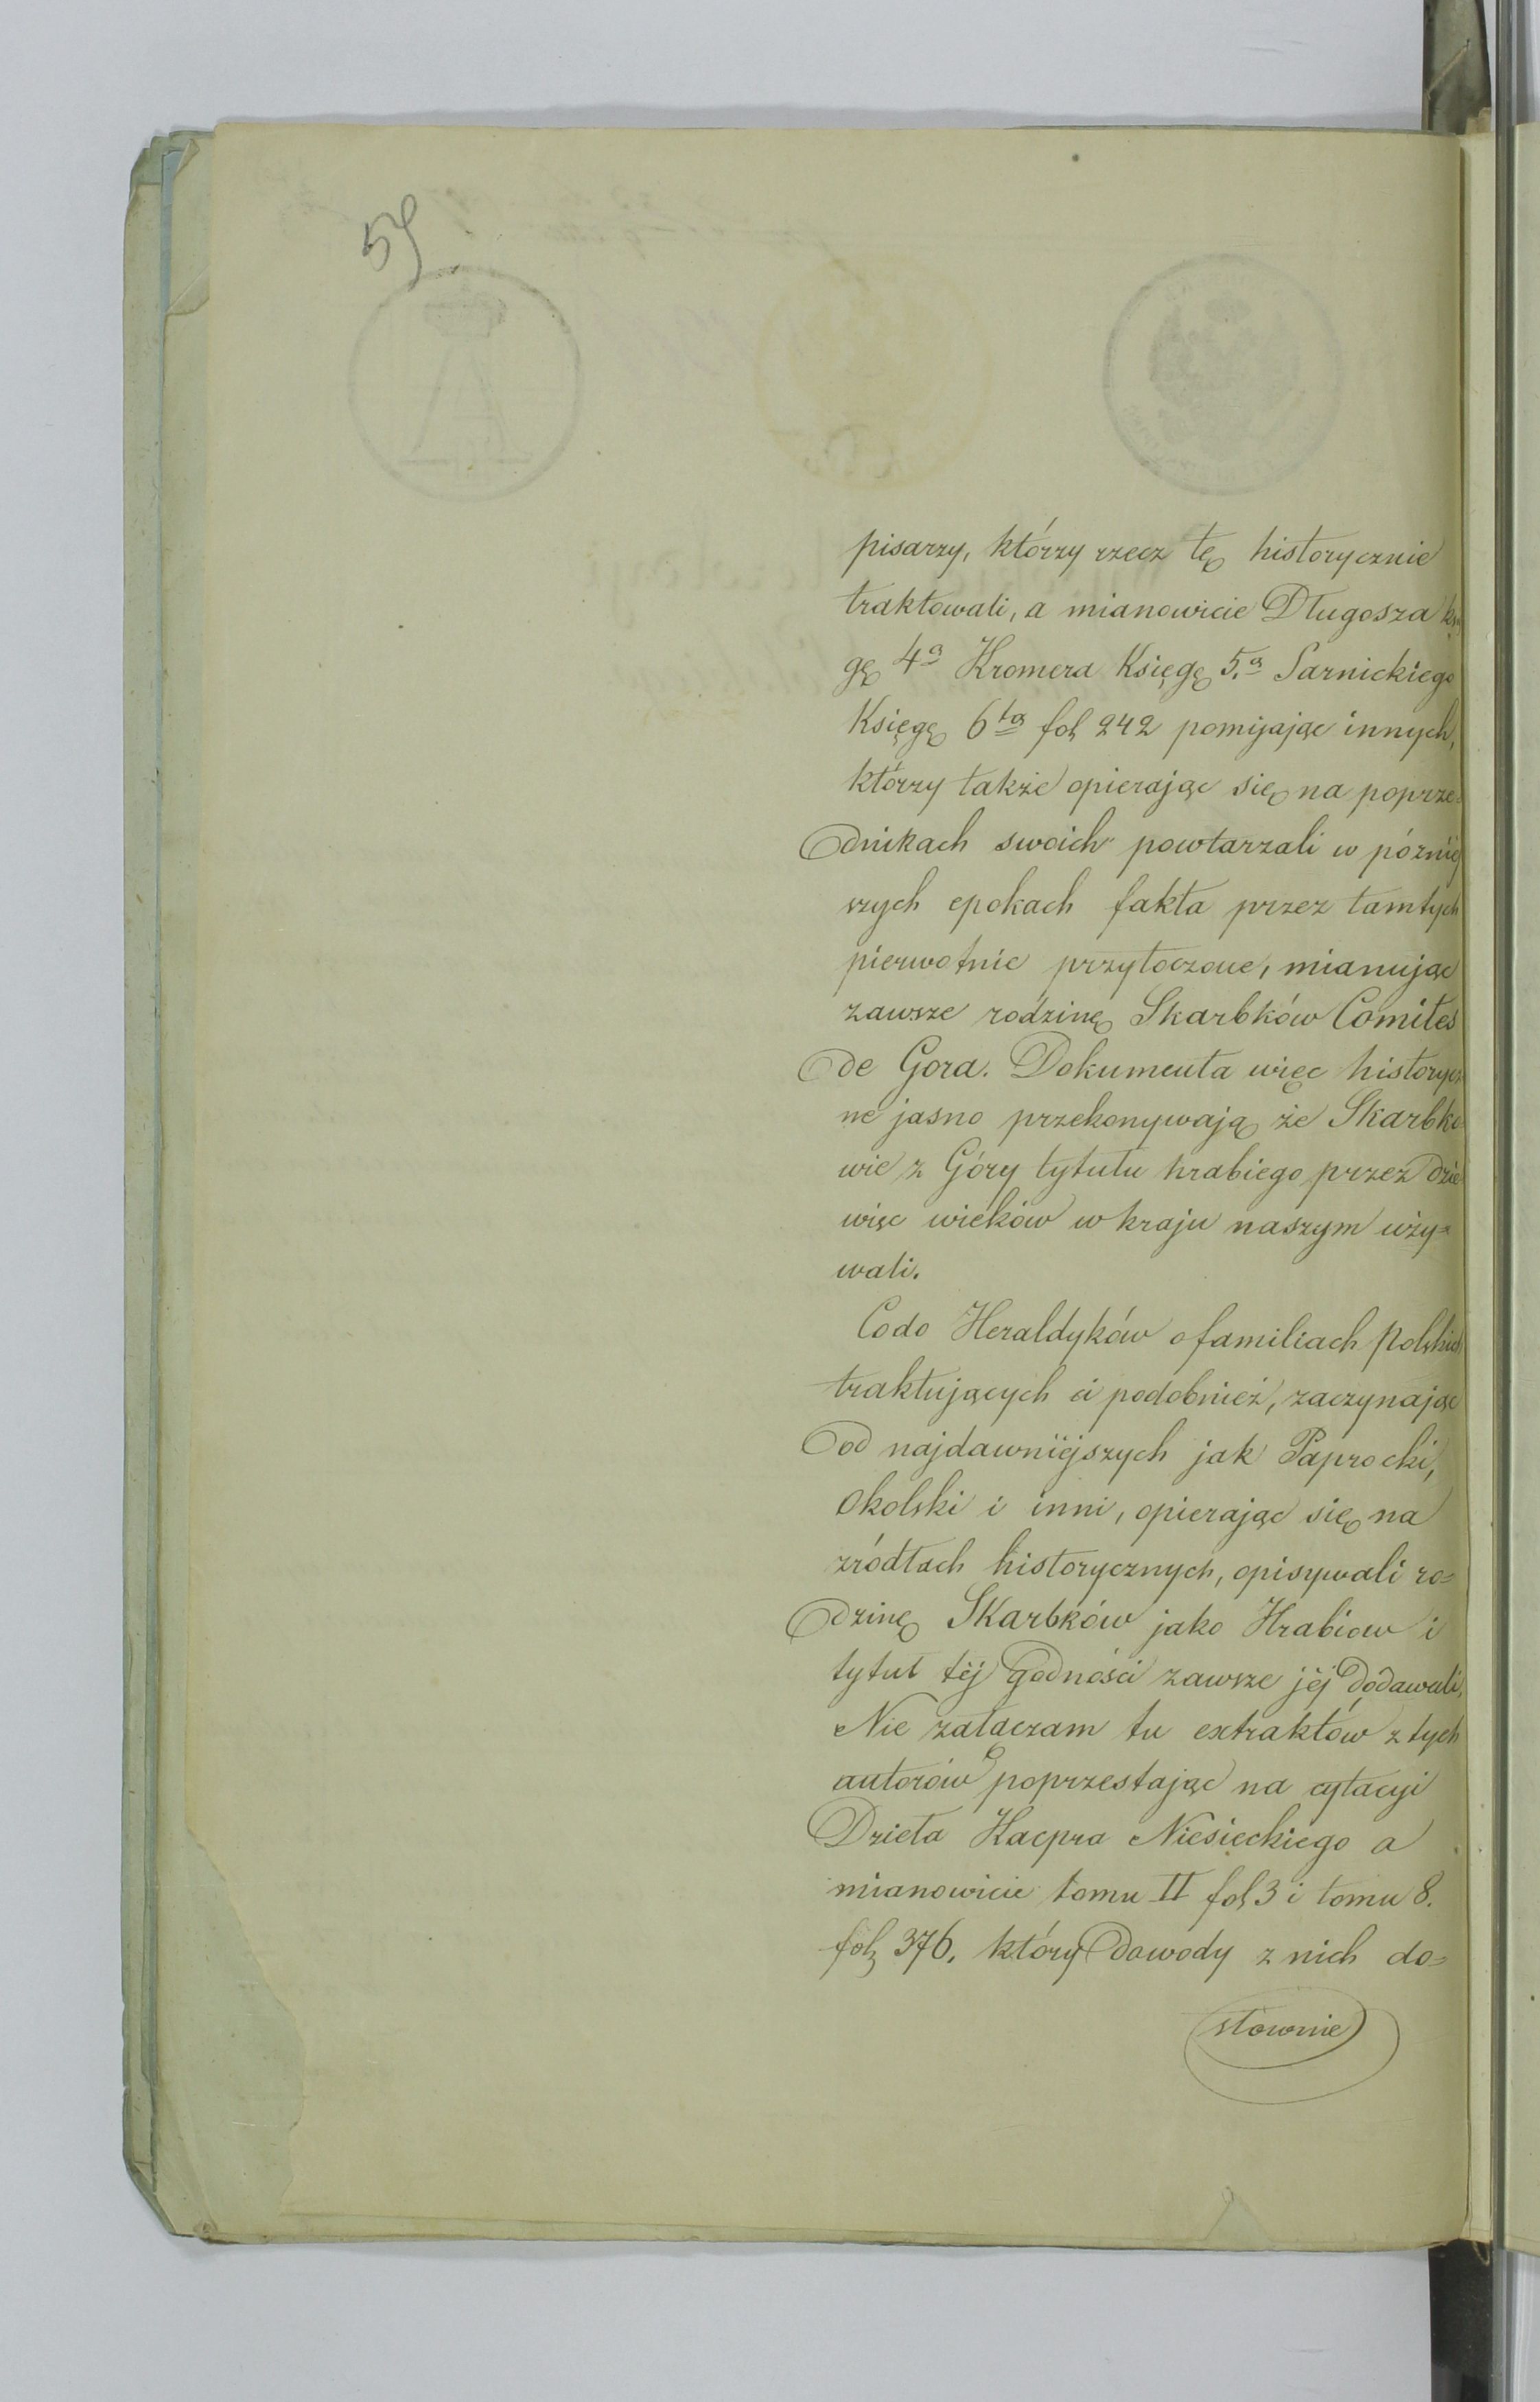 59
pisarzy, którzy rzecz tę historycznie
traktowali, a mianowicie Długosza księ
gę 4ą Kromera Księgę 5.ą Sarnickiego
Księgę 6tą fol 242 pomijając innych,
którzy także opierając się na poprze-
dnikach swoich powtarzali w późniéj
szych epokach fakta przez tamtych
pierwotnie przytoczone, mianując
zawsze rodzinę Skarbków Comites
de Gora. Dokumenta więc historycz
ne jasno przekonywają że Skarbko
wie z Góry tytułu hrabiego przez dzie
więc wieków w kraju naszym uży=
wali.
Codo Heraldyków o familiach Polskich
traktujących ci podobnież, zaczynając
od najdawniéjszych jak Paprocki,
Okolski i inni, opierając się na
źródłach historycznych, opisywali ro=
dzinę Skarbków jako Hrabiow i
tytuł téj godności zawsze jéj dodawali.
Nie załączam tu extraktów z tych
autorów poprzestając na cytacyi
Dzieła Kacpra Niesieckiego a
mianowicie tomu II fol 3 i tomu 8.
fol 376. który dowody z nich do=
słownie